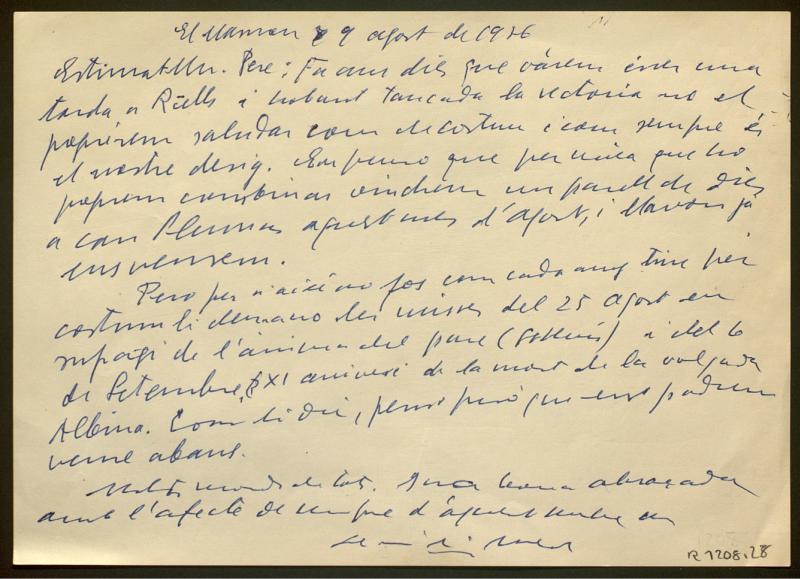 El Masnou 9 agost de 1976
Estimat Mn. Pere: Fa uns dies que vàrem ésser una
tarda a Riells i trobant tancada la rectoria no el
poguérem saludar com de costum i com sempre és
el nostre desig. Emperò que per mica que ho
poguem combinar vindrem un parell de dies
a can Plumas aquest mes d'Agost, i llavors ja
ens veurem.
Però per si així no fos com cada any tinc per
costum li demano les misses del 25 agost en
sufragi de l'ànima del pare ( ) i del 6
de Setembre, XI aniversari de la mort de la volguda
Albina. Com li dic, penso però que ens podrem
veure abans.
Molts records de tots. I una bona abraçada
amb l'afecte de sempre d'aquest
R 1208.28